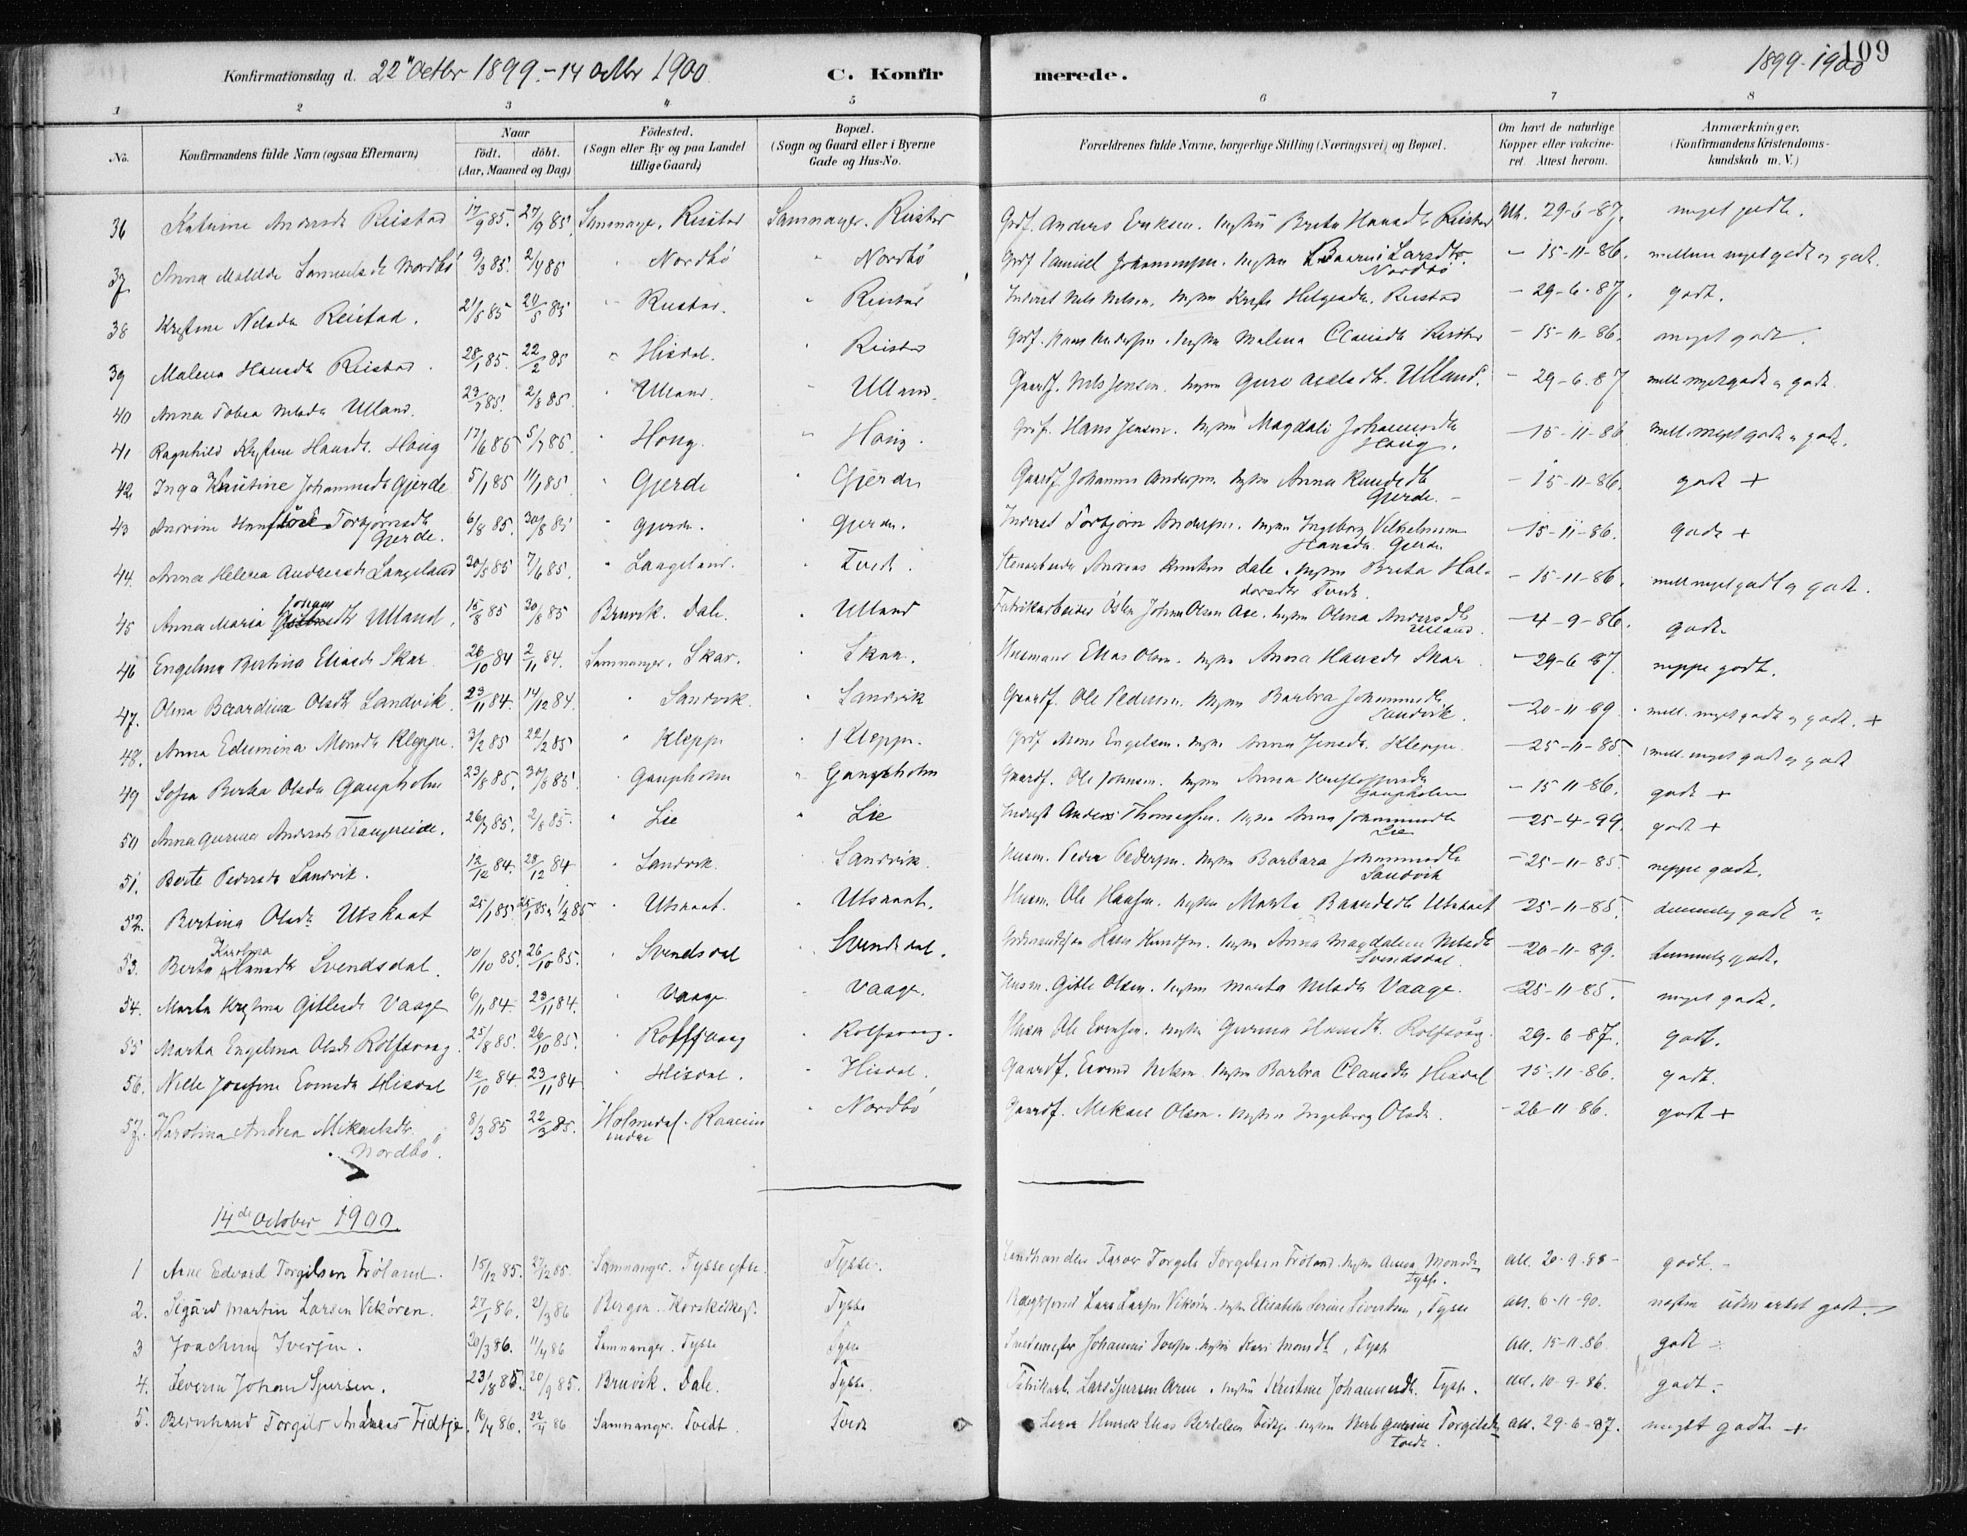 Konfirmationsdag d. 22 Octbr 1899.-14 Octbr 1900 C. Konfirmerede. 1899-1900 109
1 2 3 4 5 6 7 8
No. Konfirmandens fulde Navn (ogsaa Efternavn) Naar födt. döbt. (Aar, Maaned og Dag) Födested. (Sogn eller By og paa Landet tillige Gaard) Bopæl. (Sogn og Gaard eller i Byerne Gade og Hus-No. Forældrenes fulde Navne, borgerlige Stilling (Næringsvei) og Bopæl. Om havt de naturlige Kopper eller vakcineret. Attest herom. Anmærkninger. (Konfirmandens Kristendomskundskab m. V.)
36 Katrine Andersdt Reistad 17/9 85. 27/9 85. Samnanger. Reistad Samnanger. Reistad Grdf. Anders Eriksen. Hustru Brita Hansdt Reistad Att. 29-6-87. meget godt.
37 Anna Malilde Samuelsdt Nordbö 9/3 85. 2/4 85 " Nordbö " Nordbö Grdf Samuel Johannesen. Hustru Larsdtr. Nordbö - 15-11-86. mellem meget godt og godt.
38 Kristine Nelsdt Reistad. 85 85 " Reistad. " Reistad Inderst Nils Nilsen. Hustru Helgesdtr. Reistad - 29-6-87. godt.
39 Malena Hansdt Reistad. 28/1 85. 22/2 85 " Hisdal. " Reistad Grdf. Hans Andersen. Hustru Malena Clausdt Reistad - 15-11-86. meget godt.
40 Anna Tobea Nelsdt Ulland. 23/7 85. 2/8 85. " Ulland. " Ulland. Gaardf. Nils Jensen. Hustru Guro Axelsdt. Ulland. - 29-6-87 mell. meget godt og godt.
41 Ragnhild Kristine Hansdt. Houg 17/6 85 5/7 85. " Houg. " Houg. Grdf. Hans Jensen. Hustru Magdali Johannesdt Houg. - 15-11-86 mell. meget godt og godt.
42 Inga Kristine Johannesdt Gjerde 5/1 85 11/1 85. " Gjerde " Gjerde Gaardf Johannes Andersen. Hustru Anna Knudsdt Gjerde. - 15-11-86. godt +
43 Torbjørnsdt Gjerde. 6/8 85. 30/8 85 " Gjerde. " Gjerde. Inderst Torbjørn Andersen. Hustru Ingeborg Vilhelmine Hansdtr. Gjerde - 15-11-86. godt +
44. Anna Helena Andreasdt Langeland 30/5 85 7/6 85. " Langeland. " Tvedt. Andreas Knutsen Dale. Hustru Brita Haldorsdtr Tvedt. - 15-11-86. mell. meget godt og godt.
45 Anna Maria Johansdt Ulland. 15/8 85 30/8 85 Bruvik. Dale. " Ulland Fabrikarbeider Östen Johan Olsen Aae. Hustru Olina Andersdt Ulland. - 4-9-86. godt.
46 Engelina Bertina Eliasdt Skar 26/10 84 2/11 84. Samnanger. Skar. " Skar. Husmand Elias Olsen. Hustru Anna Hansdt Skar - 29-6 87. neppe godt.
47. Olina Baardina Olsdt Sandvik. 23/11 84. 14/12 84. " Sandvik. " Sandvik Gaardf. Ole Pedersen. Hustru Barbra Johannesdt Sandvik. - 20-11-99. mell. meget godt og godt. +
48. Anna Edumina Monsdt Kleppe. 3/2 85 22/2 85 " Kleppe " Kleppe. Grdf Mons Engelsen. Hustru Anna Jensdt. Kleppe. - 25-11-85 mell. meget godt og godt
49 Sofia Berta Olsdt Gaupholm 23/8 85. 30/8 85. " Gaupholm " Gaupholm Gaardf. Ole Johnsen. Hustru Anna Kristoffersdt Gaupholm - 15 11-86. godt +
50 Anna Gurina Andersdt Trangereide. 26/7 85. 2/8 85. " Lie " Lie Inderst Anders Thomessen. Hustru Anna Johannesdt Lie - 25-4-99. godt +
51. Berte Pedersdt Sandvik. 12/12 84. 28/12 84 " Sandvik. " Sandvik. Husm. Peder Pedersen. Hustru Barbara Johannesdt Sandvik - 25-11-85 neppe godt.
52. Bertina Olsdt Utskaat 25/1 85. 1/3 85 " Utskaat. " Utskaat. Husm. Ole Hansen. Hustru Marta Baardsdt Utskaat - 25-11-85. temmelig godt
53. Berta Karolina Hansdt Svendsdal. 10/10 85. 26/10 85. " Svendsdal " Svendsdal. Hans Knudsen. Hustru Anna Magdalena Nelsdt Svendsdal. - 20-11-89. temmelig godt.
54. Marta Kristina Gitlesdt Vaage 6/11 84. 23/11 84. " Vaage. " Vaage. Husm. Gitle Olsen. Hustru Marta Nelsdt Vaage. - 25-11-85. meget godt.
55 Marta Engelina Olsdt Rolfsvaag. 25/8 85. 26/10 85. " Rolfsvaag " Rolfsvaag. Husm Ole Evensen. Hustru Gurina Hansdt. Rolfsvaag. 29-6-87. godt.
56. Nille Josefine Eivindsdt Hisdal 12/10 84 23/11 84 " Hisdal. " Hisdal. Gaardf. Eivind Nelsen. Hustru Barbra Clausdt Hisdal 15-11-86. godt.
57. Karolina Andrea Mikaelsdt Nordbö. 8/3 85 22/3 85. Holmedal. " Nordbö Gaardf. Mikael Olsen. Hustru Ingeborg Olsdt. - 26-11-86. godt +
14de October 1900.
1 Arne Edvard Torgilsen Fröland. 15/12 85. 27/12 85. Samnanger. Tysse Tysse. Landhandler Torgils Torgilsen Fröland. Hustru Anna Monsdt Tysse. att. 20-9-88 - godt. -
2. Sigurd Martin Larsen Vikören. 27/1 86. 21/3 86 Bergen. Korskirkens. Tysse Lars Larsen Vikören. Hustru Elisabeth Serine Sivertsen, Tysse att. 6-11-90. næsten udmærket godt.
3 Joachim Iversen. 20/3 86. 11/4 86 Samnanger. Tysse Tysse Smedemester Johannes Iversen. Hustru Kari Monsdt, Tysse att. 15-11-86. godt -
4. Severin Johan Sjursen. 23/8 85. 20/9 85. Bruvik. Dale. Tysse. Fabrikarb. Lars Sjursen Arne. Hustru Kristine Johannesdt. Tysse. att. 10-9-86. godt -
5. Bernhard Torgils Andreas Fidtje. 10/4 86. 22/4 86 Samnanger. Tvedt. Tvedt Lærer Henrik Elias Bertelsen Fidtje. Hustru Berte Gurine Torgilsdt Tvedt. att. 29-6-87. meget godt +